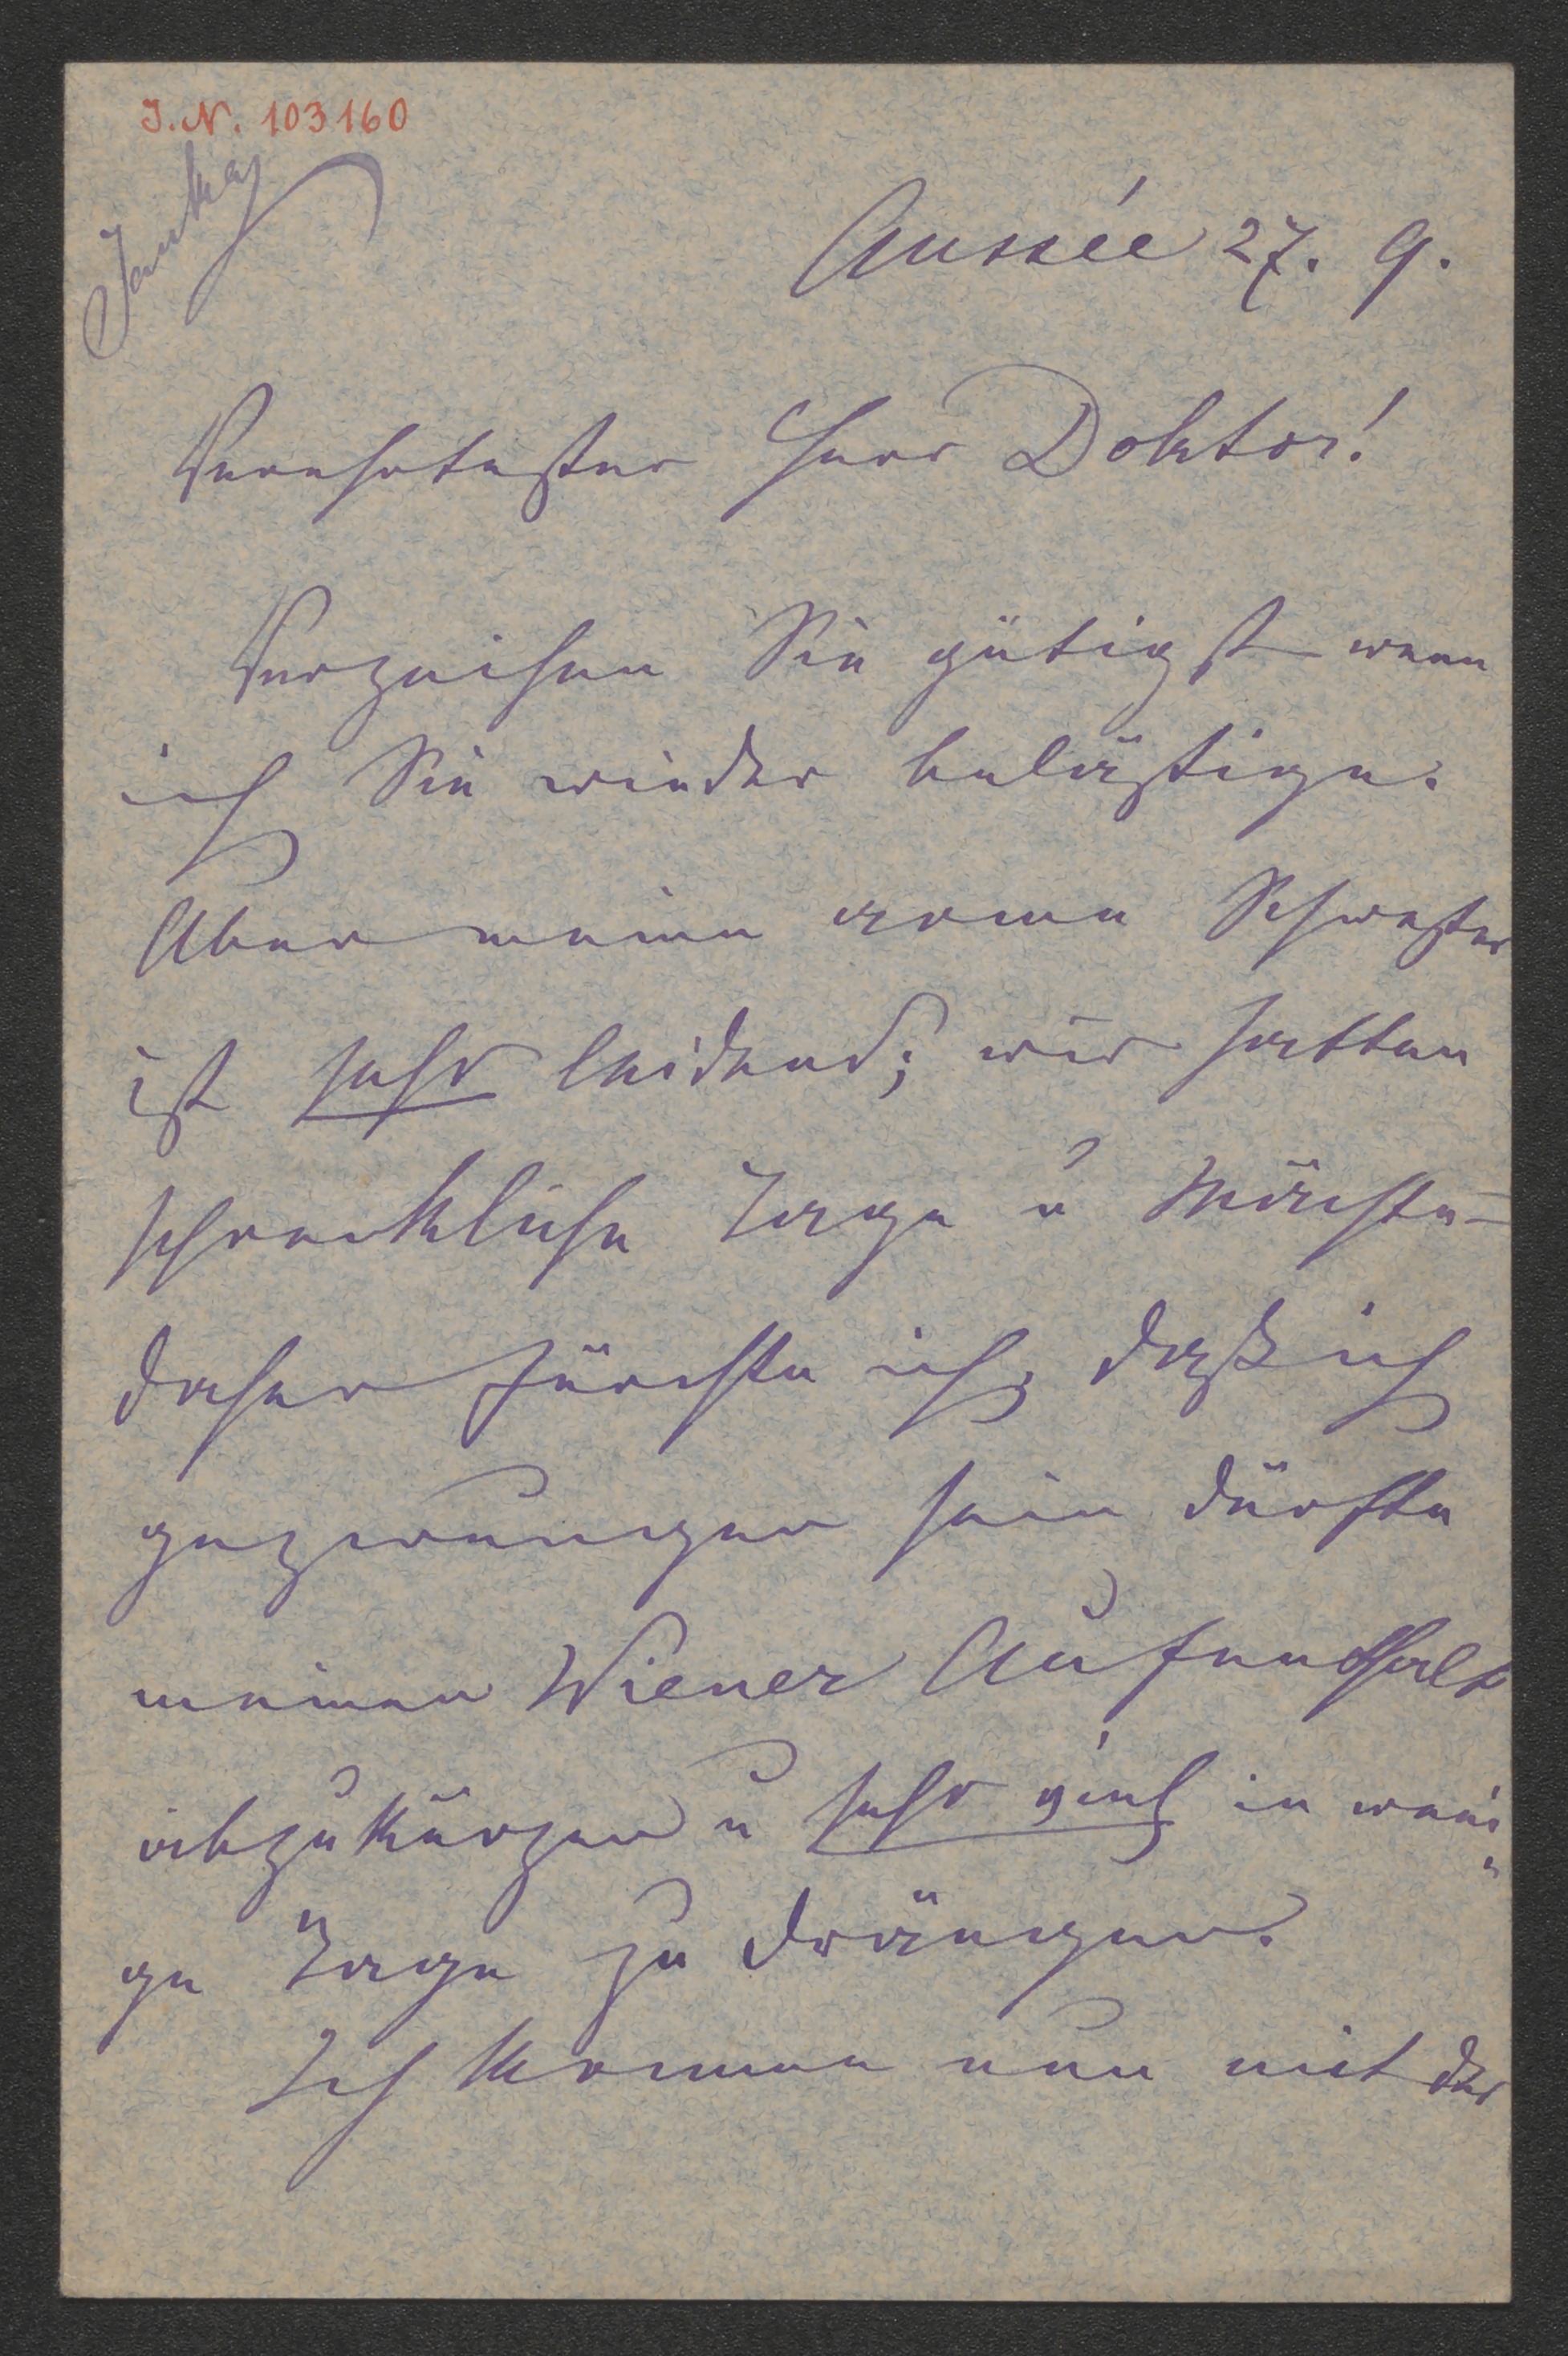 I.N. 103160
Aussée 27. 9.
Verehrtester Herr Doktor!
Verzeihen Sie gütigst wenn
ich Sie wieder belästige.
Aber meine arme Schwester
ist sehr leidend; wir hatten
schreckliche Tage u Nächte –
daher fürchte ich, daß ich
gezwungen sein dürfte
meinen Wiener Aufenthalt
abzukürzen u sehr viel in weni„
ge Tage zu drängen.
Ich komme nun mit der